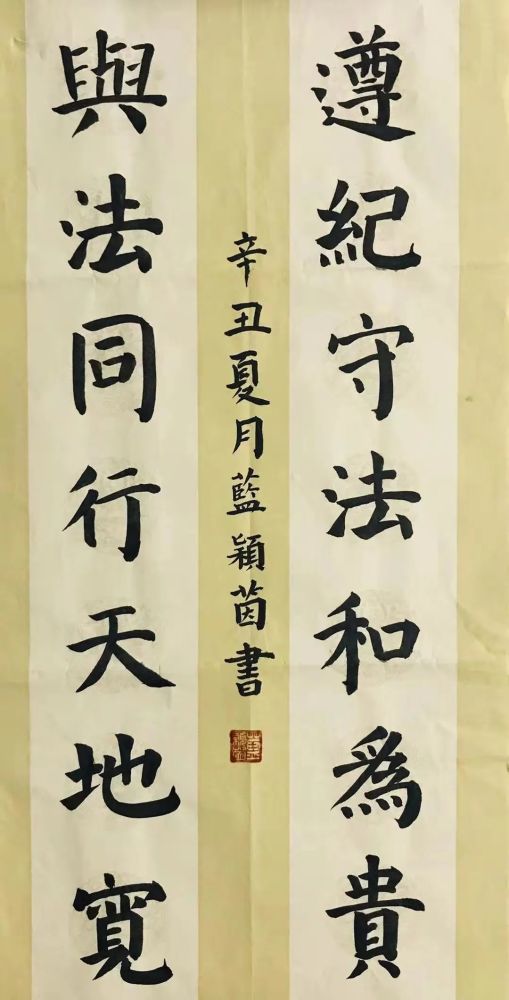 遵紀守法和為貴
與法同行天地寬
辛丑夏月藍穎茵書